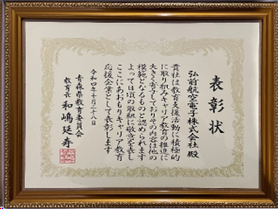 表彰状
弘前航空電子株式会社殿
貴社は教育支援活動に積極的
に取り組みキャリア教育の推進に
大きく寄与しておりその内容は他の
模範となるものと認められます
よって日頃の取組に敬意を表し
ここにあおもりキャリア教育
応援企業として表彰します
年十月二十八日
青森県教育委員会
教育長 和嶋延寿